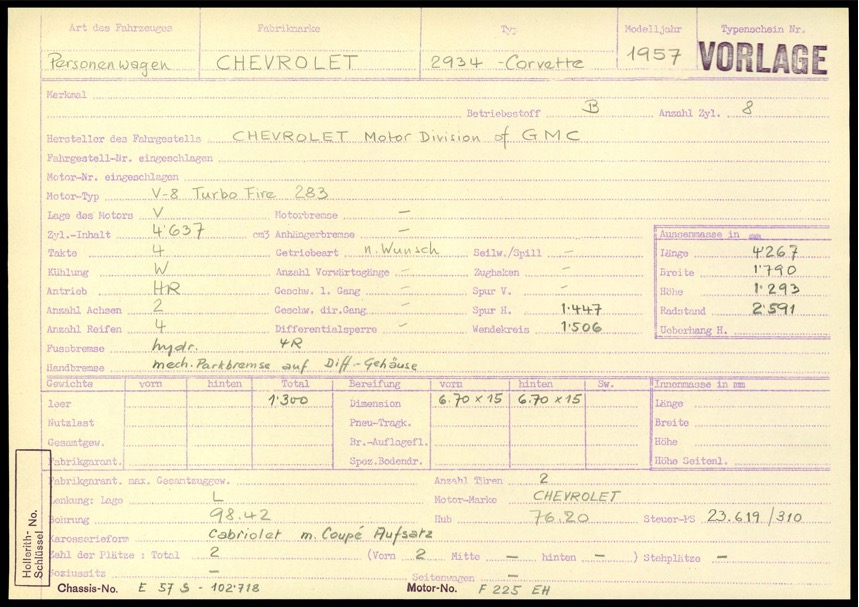 Art des Fahrzeuges Fabrikmarke Typ Modelljahr Typenschein Nr.
Personenwagen CHEVROLET 2934 - Corvette 1957 VORLAGE
Merkmal
Betriebsstoff B Anzahl Zyl. 8
Hersteller des Fahrgestells CHEVROLET Motor Division of GMC
Fahrgestell-Nr. eingeschlagen
Motor-Nr. eingeschlagen
Motor-Typ V-8 Turbo Fire 283
Lage des Motors V Motorbremse –
Zyl.-Inhalt 4'637 cm3 Anhängerbremse – Aussenmasse in mm
Takte 4 Getriebeart n. Wunsch Seilw./Spill – Länge 4'267
Kühlung W Anzahl Vorwärtsgänge – Zughaken – Breite 1'790
Antrieb HR Geschw. l. Gang – Spur V. – Höhe 1'293
Anzahl Achsen 2 Geschw. dir.Gang – Spur H. 1'447 Radstand 2'591
Anzahl Reifen 4 Differentialsperre – Wendekreis 1'506 Ueberhang H.
Fussbremse hydr. 4R
Handbremse mech. Parkbremse auf Diff.-Gehäuse
Gewichte vorn hinten Total Bereifung vorn hinten Sw. Innenmasse in mm
leer 1'300 Dimension 6.70 x 15 6.70 x 15 Länge
Nutzlast Pneu-Tragk. Breite
Gesamtgew. Br.-Auflagefl. Höhe
Fabrikgarant. Spez.Bodendr. Höhe Seitenl.
Fabrikgarant. max. Gesamtzuggew. Anzahl Türen 2
Lenkung: Lage L Motor-Marke CHEVROLET
Bohrung 98.42 Hub 76.20 Steuer-PS 23.619/310
Karosserieform Cabriolet m. Coupé Aufsatz
Zahl der Plätze : Total 2 (Vorn 2 Mitte – hinten – ) Stehplätze –
Soziussitz – Seitenwagen –
Chassis-No. E 57 S - 102'718 Motor-No. F 225 EH
Hollerith-
Schlüssel No.